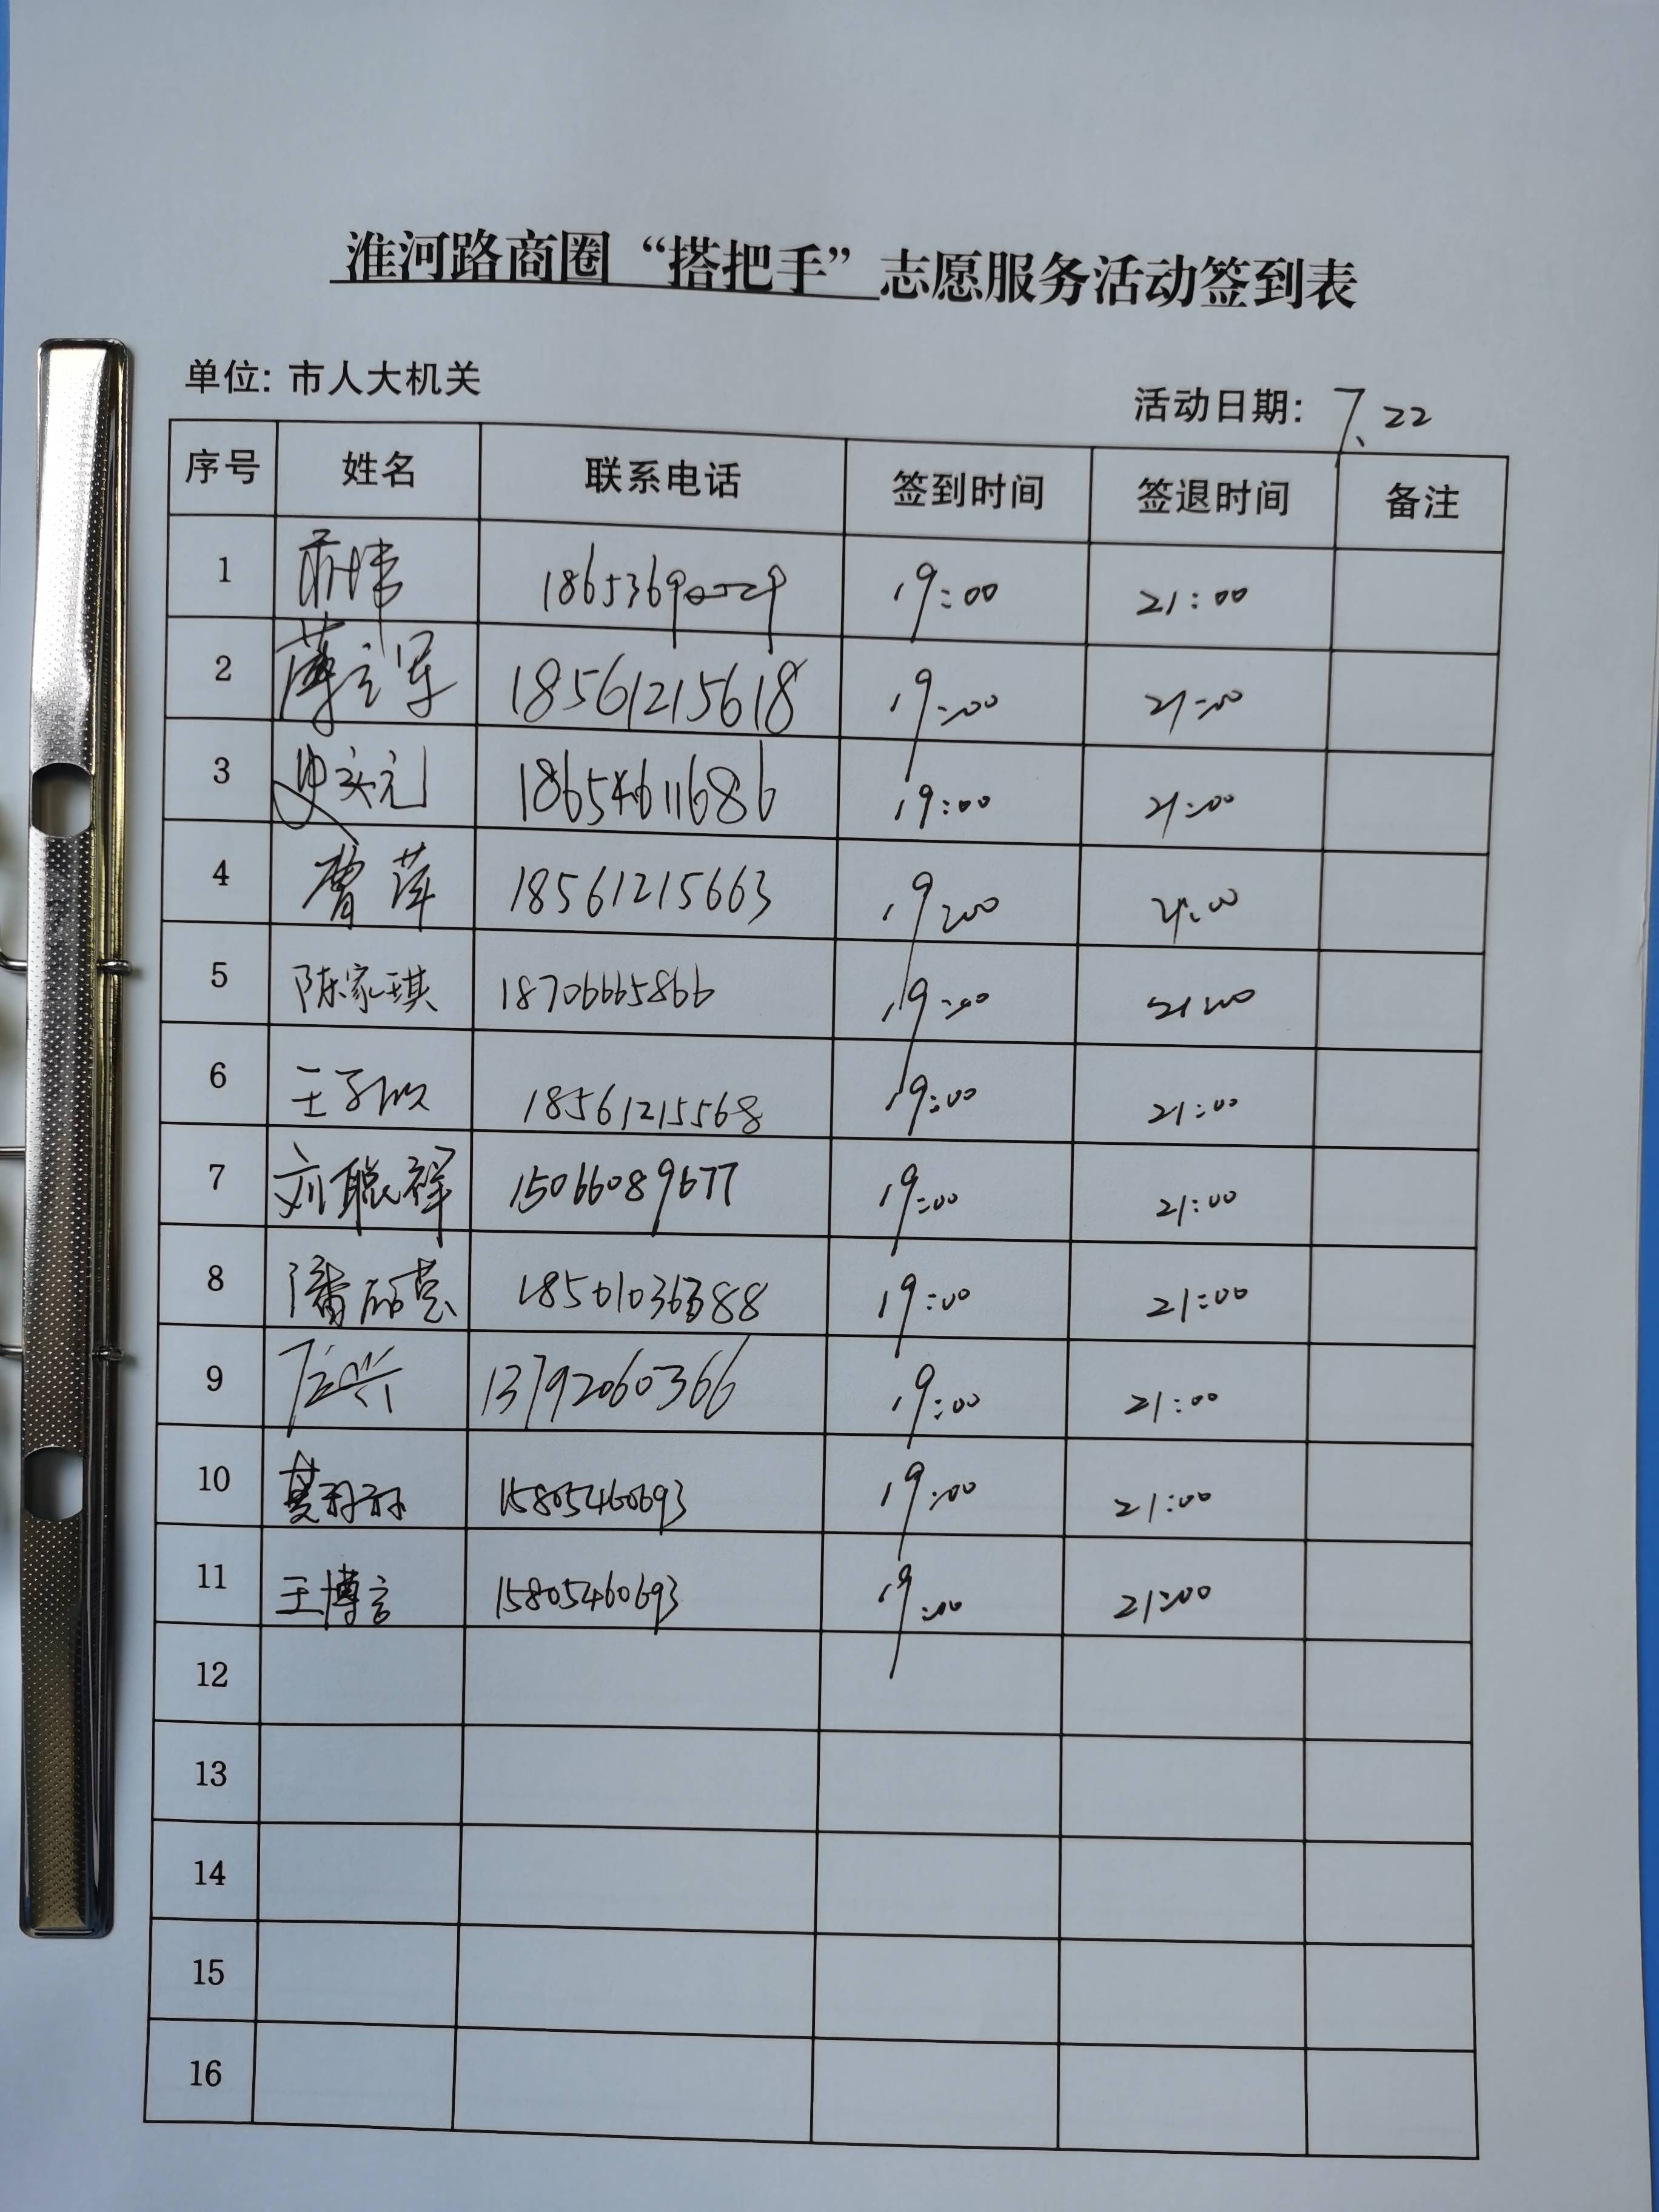 淮河路商圈“搭把手”志愿服务活动签到表
单位: 市人大机关
活动日期: 7.22
序号 姓名 联系电话 签到时间 签退时间 备注
1 19:00 21:00
2 薄立军 18561215618 19:00 21:00
3 18654611686 19:00 21:00
4 曹萍 18561215663 19:00 21:00
5 陈家琪 18706665866 19:00 21:00
6 王子欣 18561215568 19:00 21:00
7 刘聪祥 15066089677 19:00 21:00
8 19:00 21:00
9 13792060366 19:00 21:00
10 15805460693 19:00 21:00
11 王博言 15805460693 19:00 21:00
12
13
14
15
16